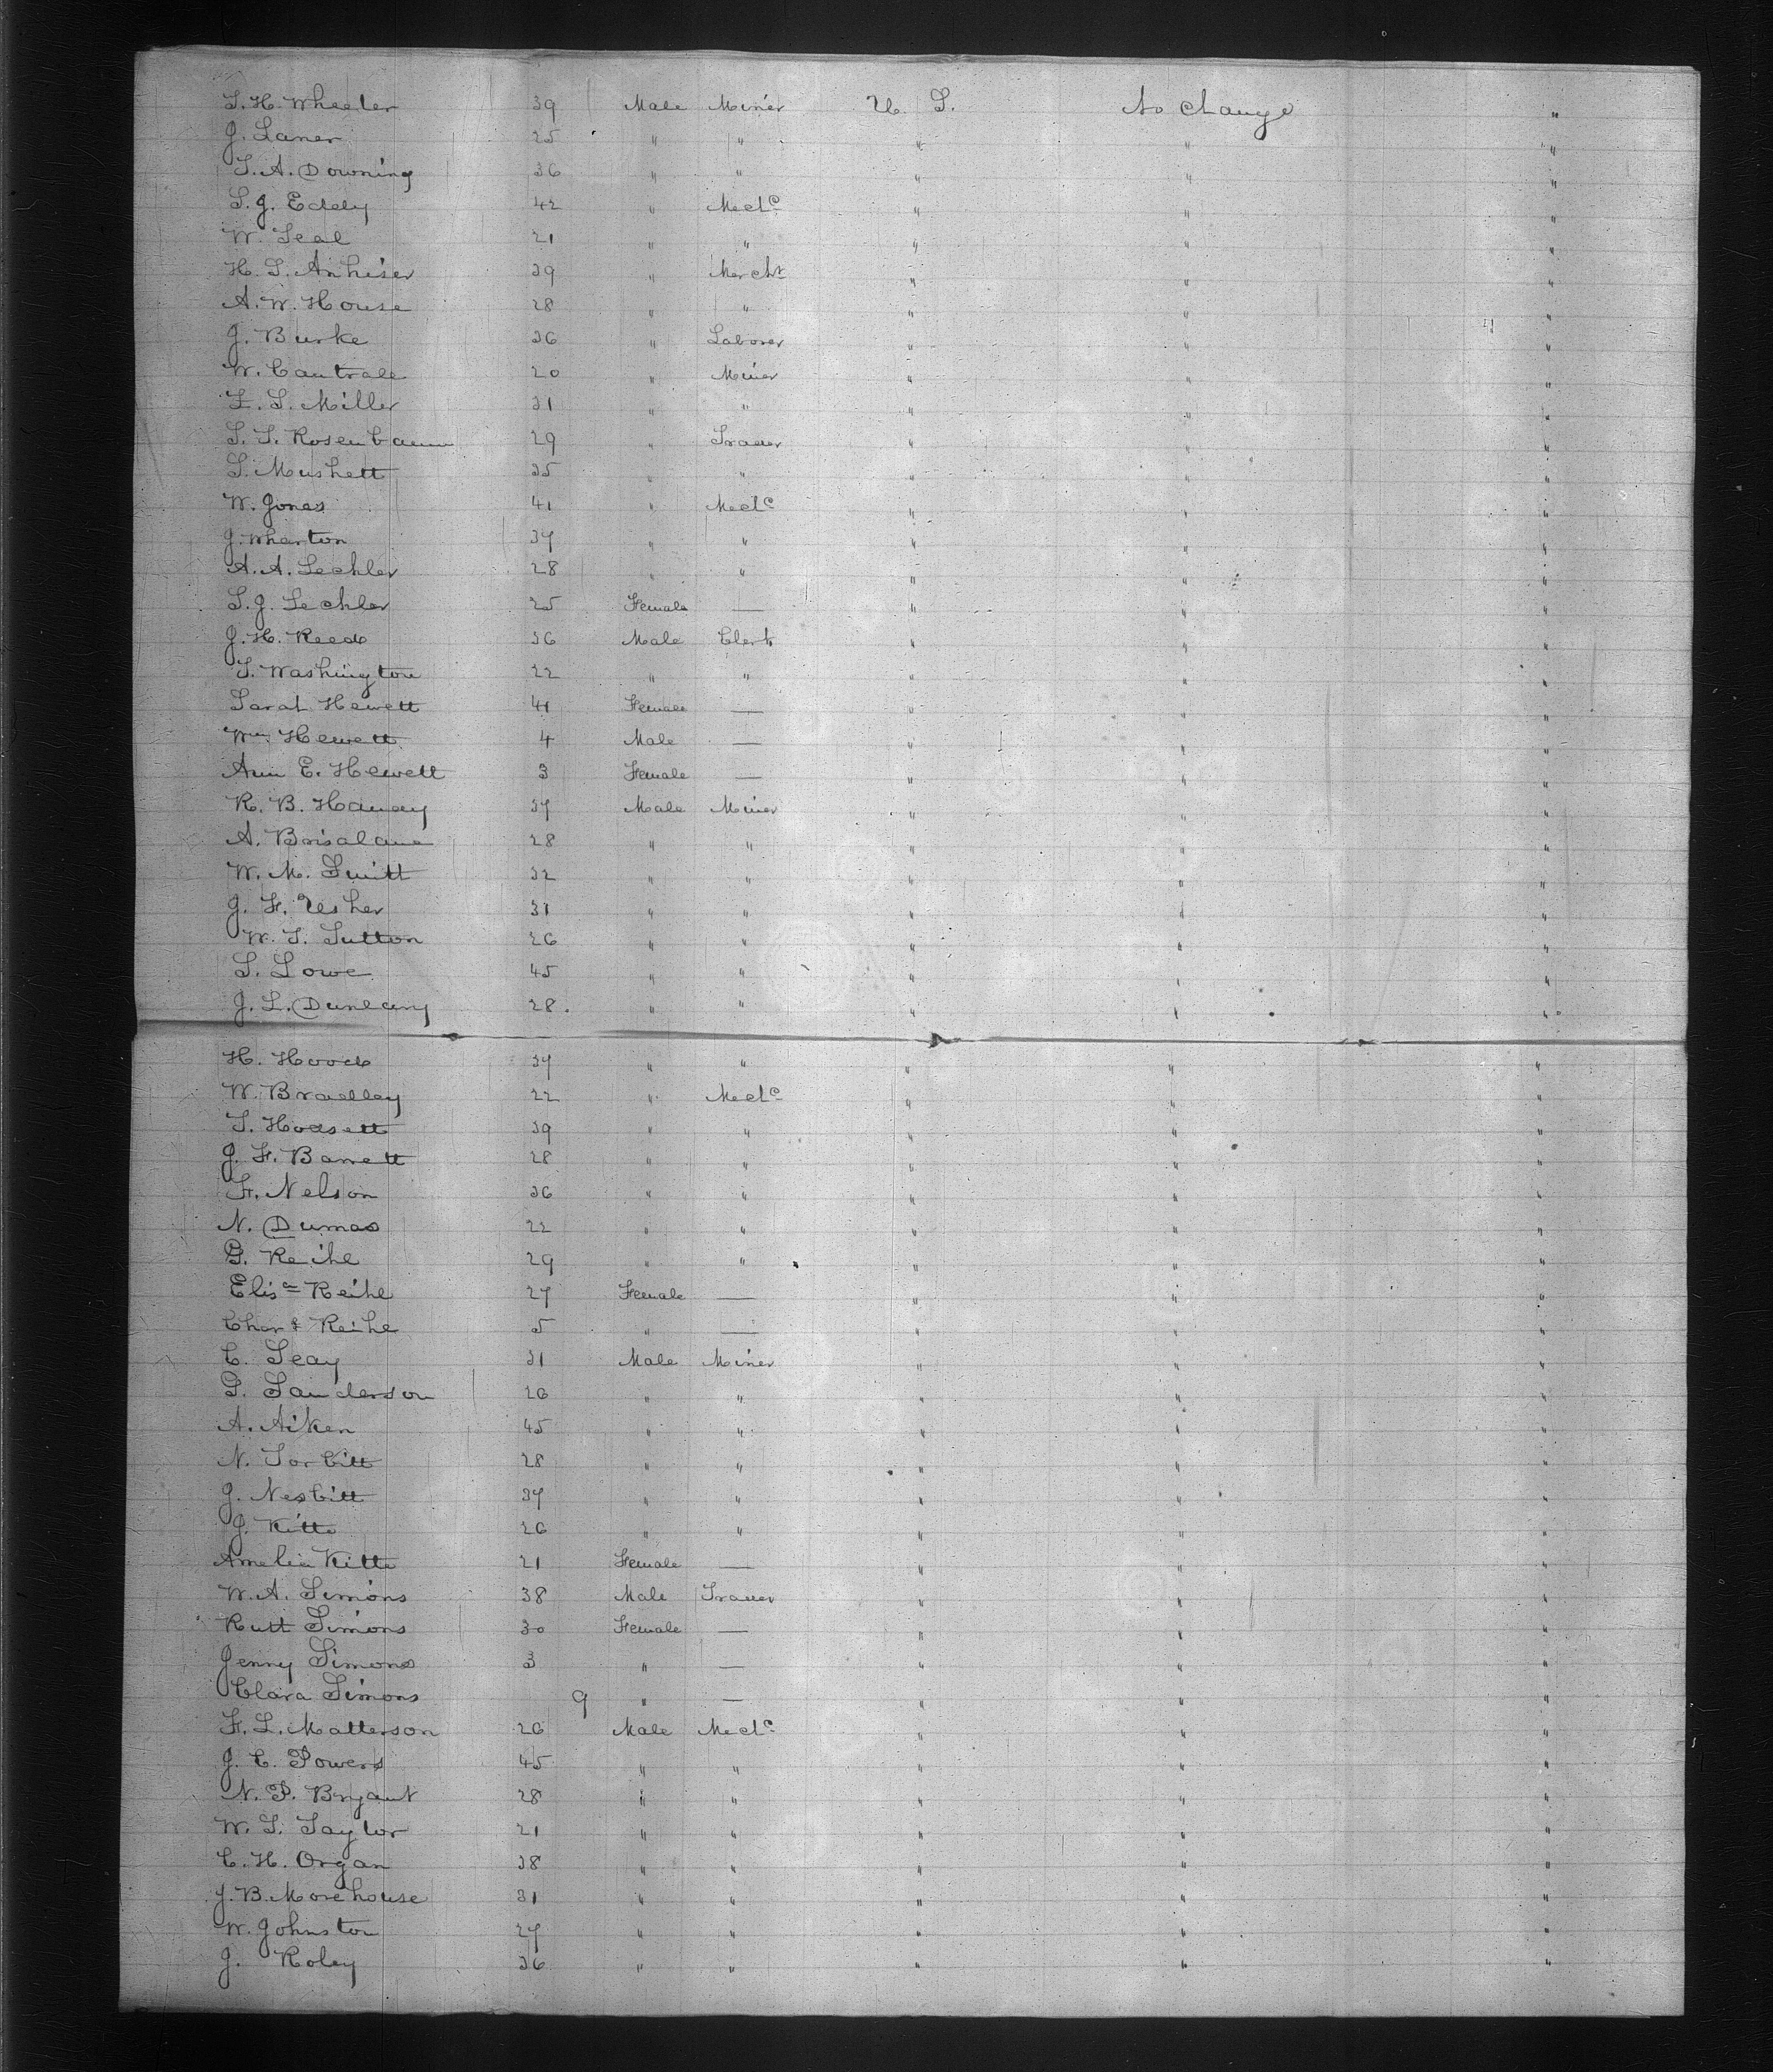 S. H. Wheeler 39 Male Miner U. S. No change "
J. Laner 25 " " " " "
S. A. Downing 36 " " " " "
S. J. Eddy 42 " Mechc " " "
W. Seal 21 " " " " "
H. S. Anhiser 39 " Mercht " " "
A. W. House 28 " " " " "
J. Burke 36 " Laborer " " "
W. Cantrale 20 " Miner " " "
L. S. Miller 31 " " " " "
S. S. Rosenbaum 29 " Trader " " "
S. Mushett 35 " " " " "
W. Jones 41 " Mechc " " "
J. Wharton 37 " " " " "
A. A. Lechler 28 " " " " "
S. J. Lechler 25 Female — " " "
J. H. Reed 36 Male Clerk " " "
T. Washington 22 " " " " "
Sarah Hewett 41 Female — " " "
Wm. Hewett 4 Male — " " "
Ann E. Hewett 3 Female — " " "
R. B. Hanay 37 Male Miner " " "
A. Brisalane 28 " " " " "
W. M. Smith 32 " " " " "
J. F. Usher 31 " " " " "
W. T. Sutton 26 " " " " "
S. Lowe 45 " " " " "
J. L. Dunlavy 28. " " " " "
H. Hood 37 " " " " "
W. Bradley 22 " Mechc " " "
T. Hodsett 39 " " " " "
J. F. Barrett 28 " " " " "
F. Nelson 36 " " " " "
N. Dumas 22 " " " " "
G. Reihl 29 " " " " "
Elisa Reihl 27 Female — " " "
Char Reihl 5 " — " " "
C. Seay 31 Male Miner " " "
G. Sanderson 26 " " " " "
A. Aiken 45 " " " " "
N. Torbitt 28 " " " " "
J. Nesbitt 37 " " " " "
J. Kitto 26 " " " " "
Amelia Kitto 21 Female — " " "
W. A. Simons 38 Male Trader " " "
Ruth Simons 30 Female — " " "
Jenny Simons 3 " — " " "
Clara Simons 9 " — " " "
F. L. Matterson 26 Male Mechc " " "
J. C. Powers 45 " " " " "
N. P. Bryant 28 " " " " "
W. S. Taylor 21 " " " " "
C. H. Organ 38 " " " " "
J. B. Morehouse 31 " " " " "
W. Johnston 27 " " " " "
J. Roley 36 " " " " "